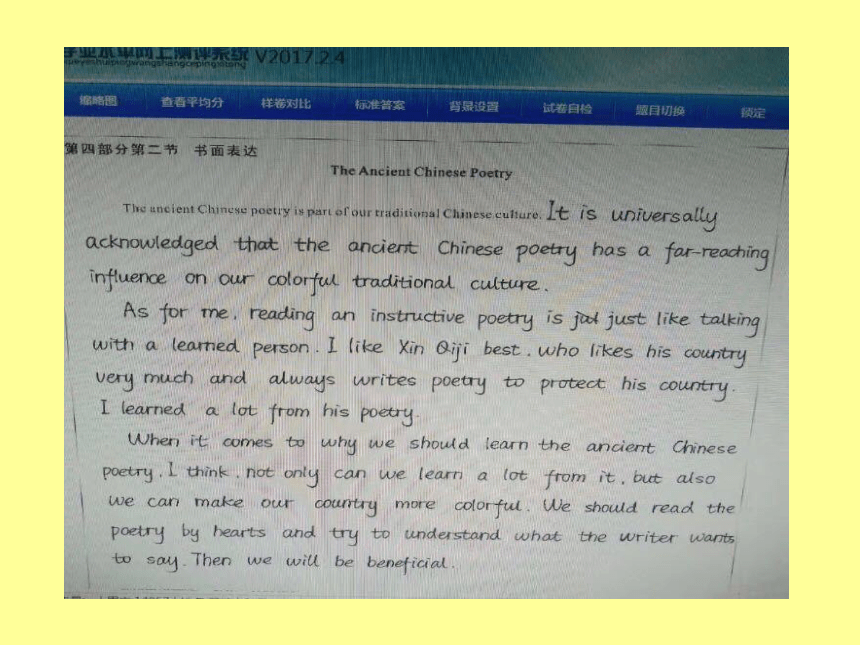 学业水平网上测评系统 V2017.2.4
xueyeshuipingwangshangcepingxitong
缩略图 查看平均分 样卷对比 标准答案 背景设置 试卷自检 题目切换 锁定
第四部分第二节 书面表达
The Ancient Chinese Poetry
The ancient Chinese poetry is part of our traditional Chinese culture. It is universally
acknowledged that the ancient Chinese poetry has a far-reaching
influence on our colorful traditional culture.
As for me, reading an instructive poetry is just like talking
with a learned person. I like Xin Qiji best, who likes his country
very much and always writes poetry to protect his country.
I learned a lot from his poetry.
When it comes to why we should learn the ancient Chinese
poetry, I think, not only can we learn a lot from it, but also
we can make our country more colorful. We should read the
poetry by hearts and try to understand what the writer wants
to say. Then we will be beneficial.